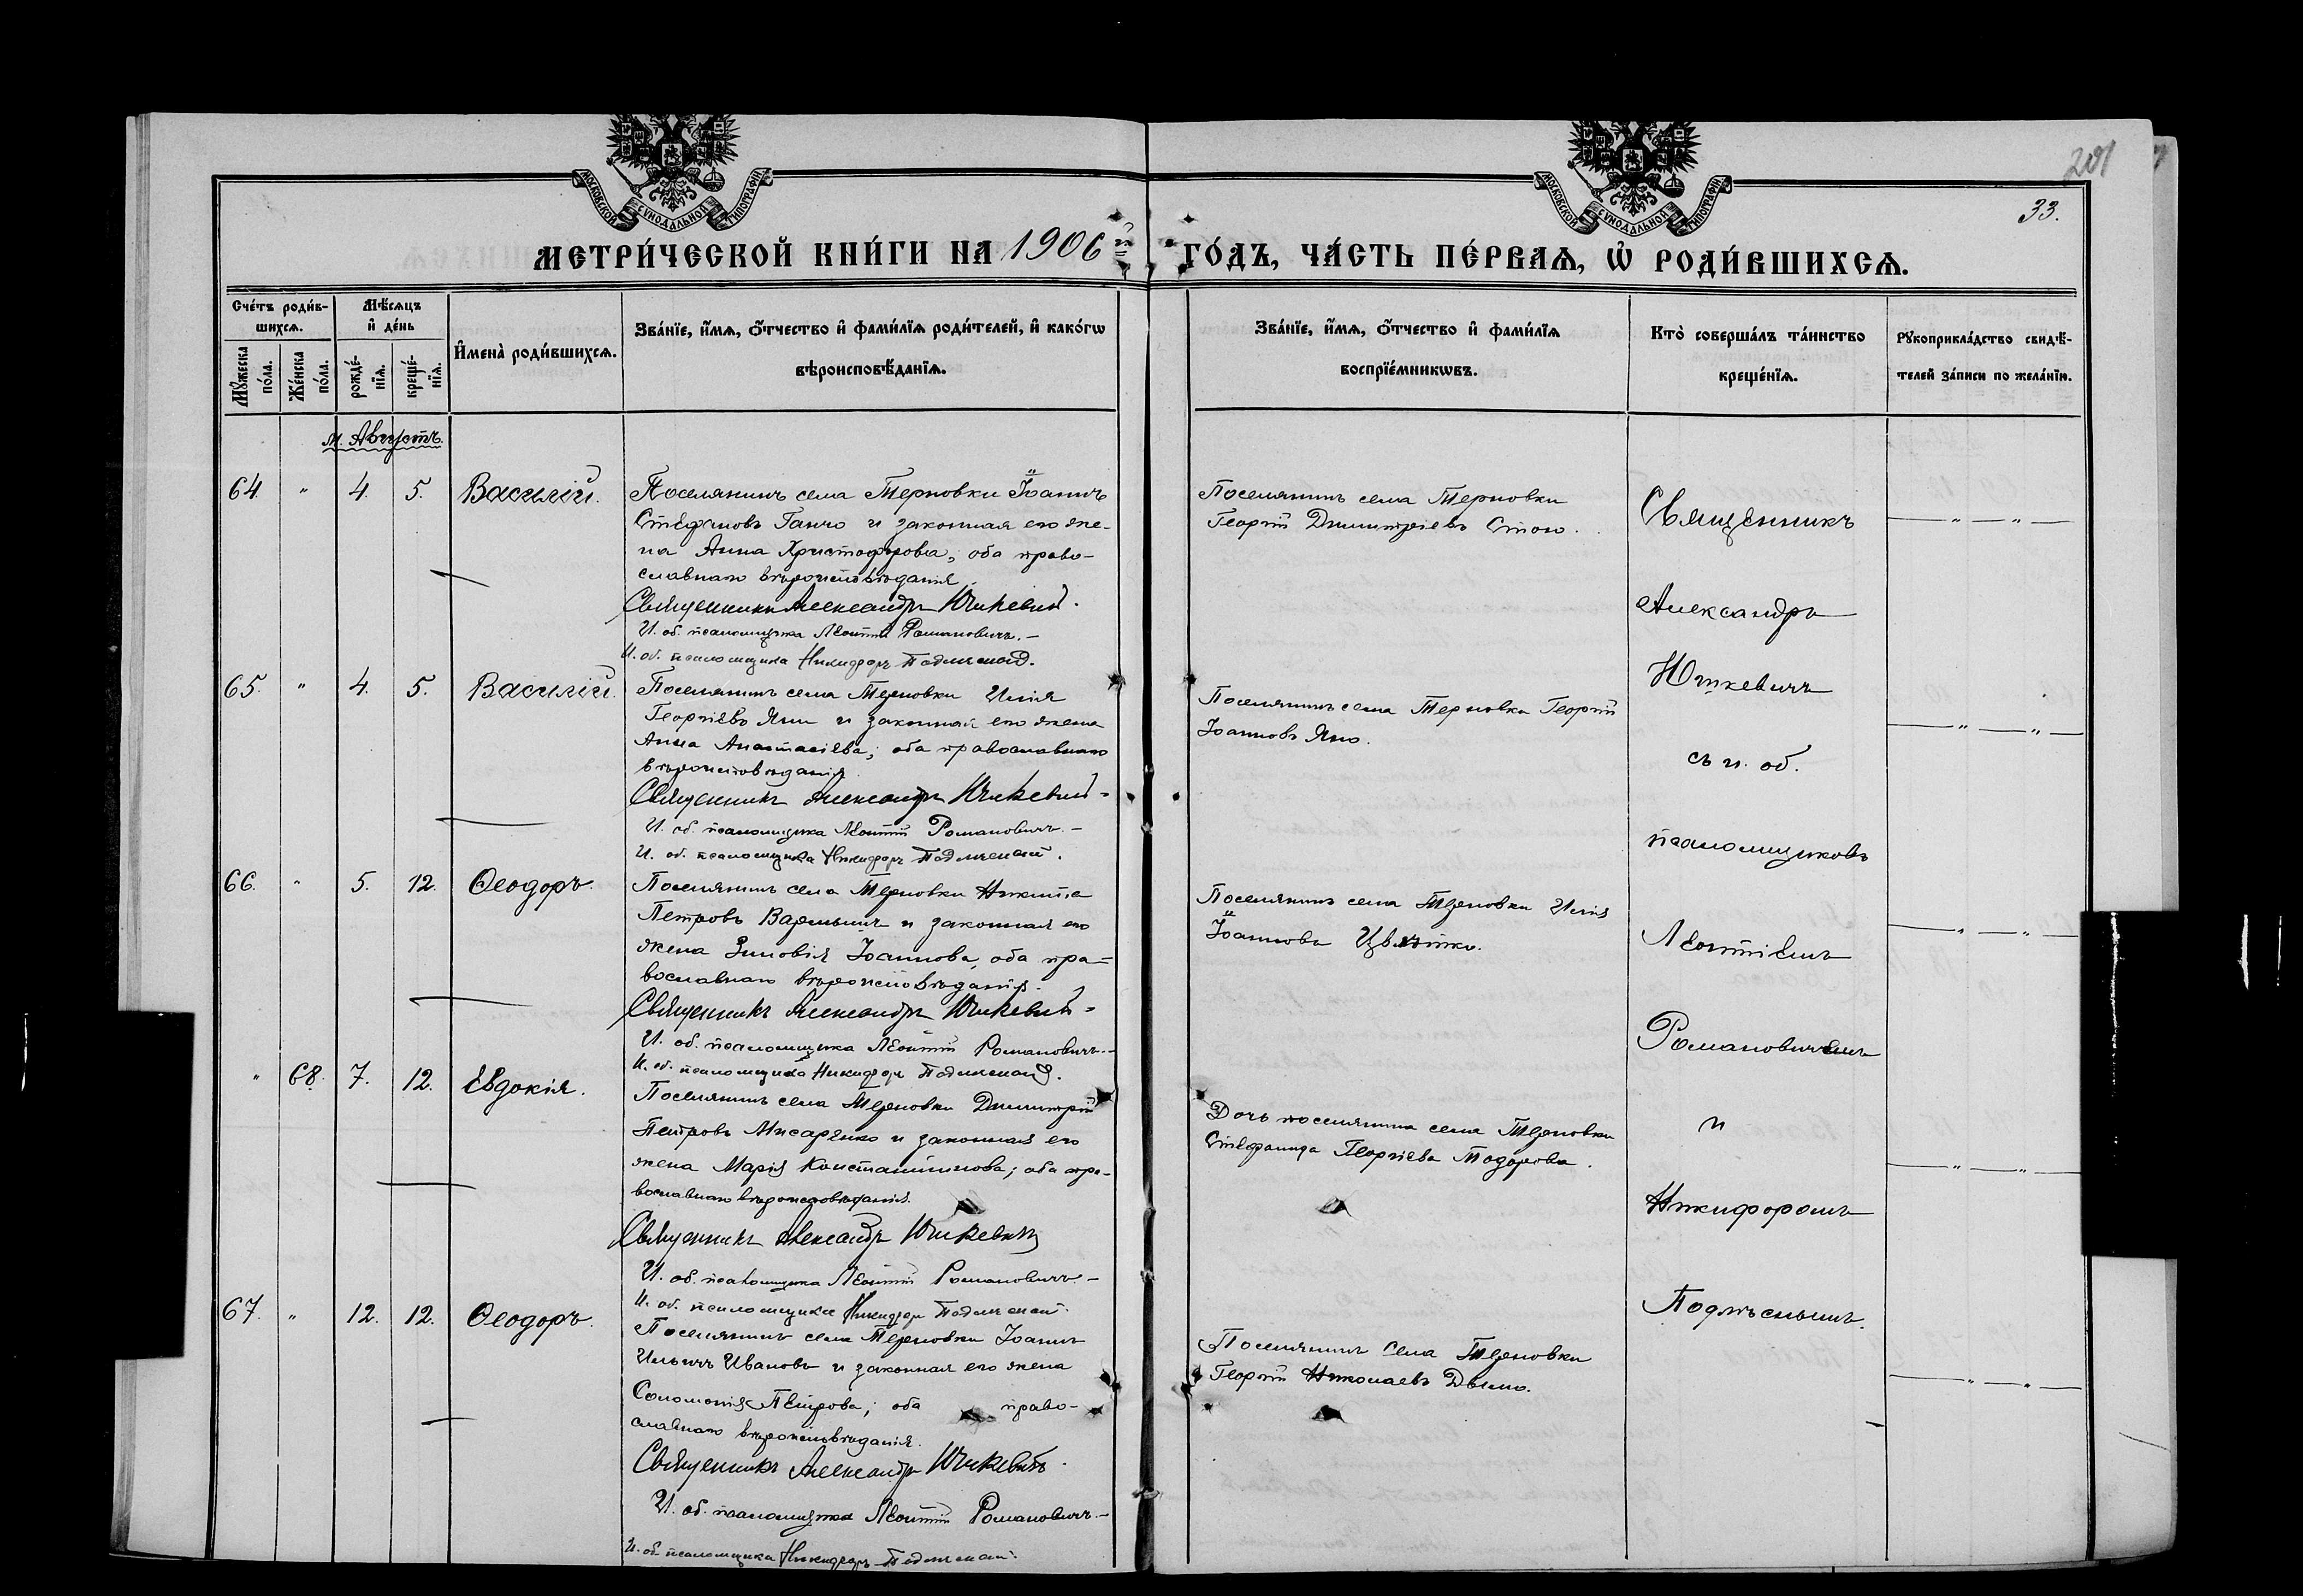 201
33.
МОСКОВСКОЙ СѴНОДАЛЬНОЙ ТИПОГРАФІИ
МОСКОВСКОЙ СѴНОДАЛЬНОЙ ТИПОГРАФІИ
МЕТРИ́ЧЕСКОЙ КНИ́ГИ НА 1906й ГО́ДЪ, ЧА́СТЬ ПЕ́РВАѦ, Ѡ҆ РОДИ́ВШИХСѦ.
Сче́тъ роди́в-
шихсѧ.
Мѣ́сяцъ
и҆ де́нь
Мꙋжеска по́ла.
Же́нска по́ла.
рожде́-
нїѧ.
креще́-
нїѧ.
И҆мена̀ роди́вшихсѧ.
Зва́нїе, и҆́мѧ, ѻ҆́тчество и҆ фами́лїѧ роди́телей, и҆ како́гѡ
вѣроисповѣ́данїѧ.
Зва́нїе, и҆́мѧ, ѻ҆́тчество и҆ фами́лїѧ
воспрїе́мникѡвъ.
Кто̀ соверша́лъ та́инство
креще́нїѧ.
Рꙋкоприкла́дство свидѣ́-
телей за́писи по жела́нїю.
м. Августъ.
64. " 4. 5. Василій.
Поселянинъ села Терновки Іоаннъ
Стефановъ Ганчо и законная его же-
на Анна Христофорова, оба право-
славнаго вѣроисповѣданія.
Священникъ Александръ Юшкевичъ.
И. об. псаломщика Леонтій Романовичъ.-
И. об. псаломщика Никифоръ Подлѣсный.
Поселянинъ села Терновки
Георгій Димитріевъ Стою.
65. " 4. 5. Василій.
Поселянинъ села Терновки Илія
Георгіевъ Яни и законная его жена
Анна Анастасіева; оба православнаго
вѣроисповѣданія.
Священникъ Александръ Юшкевичъ-
И. об. псаломщика Леонтій Романовичъ.-
И. об. псаломщика Никифоръ Подлѣсный.
Поселянинъ села Терновки Георгій
Іоанновъ Яно.
66. " 5. 12. Ѳеодоръ.
Поселянинъ села Терновки Никита
Петровъ и законная его
жена Зиновія Іоаннова, оба пра-
вославнаго вѣроисповѣданія.
Священникъ Александръ Юшкевичъ-
И. об. псаломщика Леонтій Романовичъ.-
И. об. псаломщика Никифоръ Подлѣсный.
Поселянинъ села Терновки Илія
Іоанновъ Цвятко.
" 68. 7. 12. Евдокія.
Поселянинъ села Терновки Димитрій
Петровъ Мисаренко и законная его
жена Марія Константинова; оба пра-
вославнаго вѣроисповѣданія.
Священникъ Александръ Юшкевичъ
И. об. псаломщика Леонтій Романовичъ.-
И. об. псаломщика Никифоръ Подлѣсный.
Дочь поселянина села Терновки
Стефанида Георгіева Тодорова.
67. " 12. 12. Ѳеодоръ.
Поселянинъ села Терновки Іоаннъ
Ильичъ Ивановъ и законная его жена
Соломонія Петрова; оба право-
славнаго вѣроисповѣданія.
Священникъ Александръ Юшкевичъ.
И. об. псаломщика Леонтій Романовичъ.-
И. об. псаломщика Никифоръ Подлѣсный.
Поселянинъ села Терновки
Георгій Николаевъ Дымо.
Священникъ
Александръ
Юшкевичъ
съ и. об.
псаломщиковъ
Леонтіемъ
Романовичемъ
и
Никифоромъ
Подлѣснымъ.